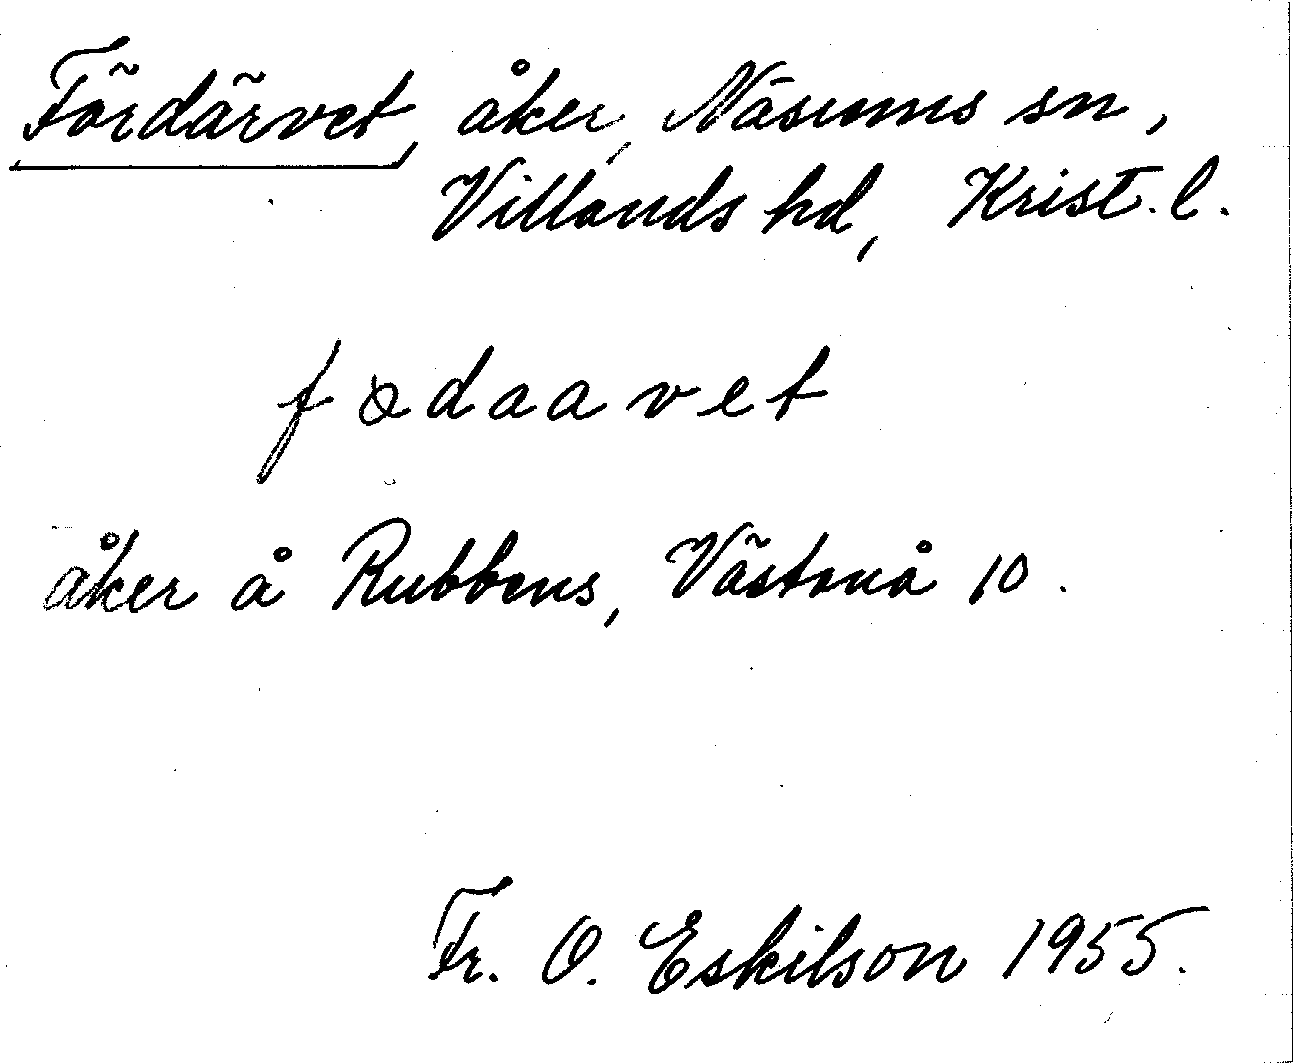 Fördärvet, åker, Näsums sn,
Villands hd, Krist. l.
födaavet
åker å Rubbens, Västanå 10.
Fr. O. Eskilson 1955.